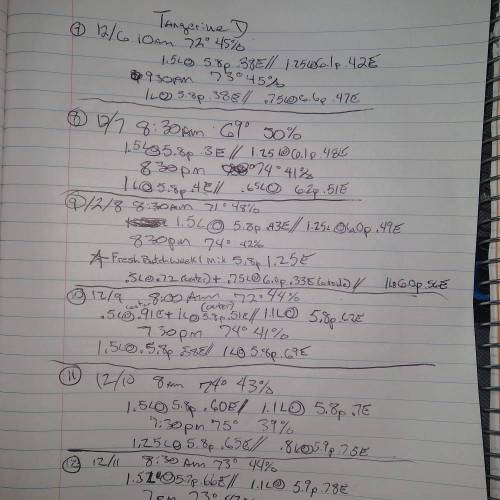 Tangerine D
⑦ 12/6 10am 72° 45%
1.5L@ 5.8p .38E // 1.25L@6.1p .42E
930pm 73° 45%
1L@ 5.8p .38E // .75L@6.6p .47E
⑧ 12/7 8:30Am 69° 50%
1.5L@5.8p .3E // 1.25L@6.1p .48E
830pm 74° 41%
1L@ 5.8p .4E // .65L@ 6.2p .51E
⑨ 12/8 8:30am 71° 48%
1.5L@ 5.8p .43E // 1.25L@6.0p .49E
830pm 74° 42%
Fresh Batch week 1 mix 5.8p 1.25E
.5L@.72 (center) + .75L@6.0p .33E (outside) // 1L@6.0p .56E
⑩ 12/9 8:00Am 72° 44%
(center) (outer)
.5L@ .91E + 1L@ 5.8p .51E // 1.1L@ 5.8p .62E
7:30pm 74° 41%
1.5L@ 5.8p // 1L@ 5.8p .69E
⑪ 12/10 8am 74° 43%
1.5L@ 5.8p .60E // 1.1L@ 5.8p .7E
7:30pm 75° 39%
1.25L@ 5.8p .63E // .8L@5.9p .75E
⑫ 12/11 8:30 Am 73° 44%
1.5L@5.7p .66E // 1.1L@ 5.9p .78E
7pm 73°